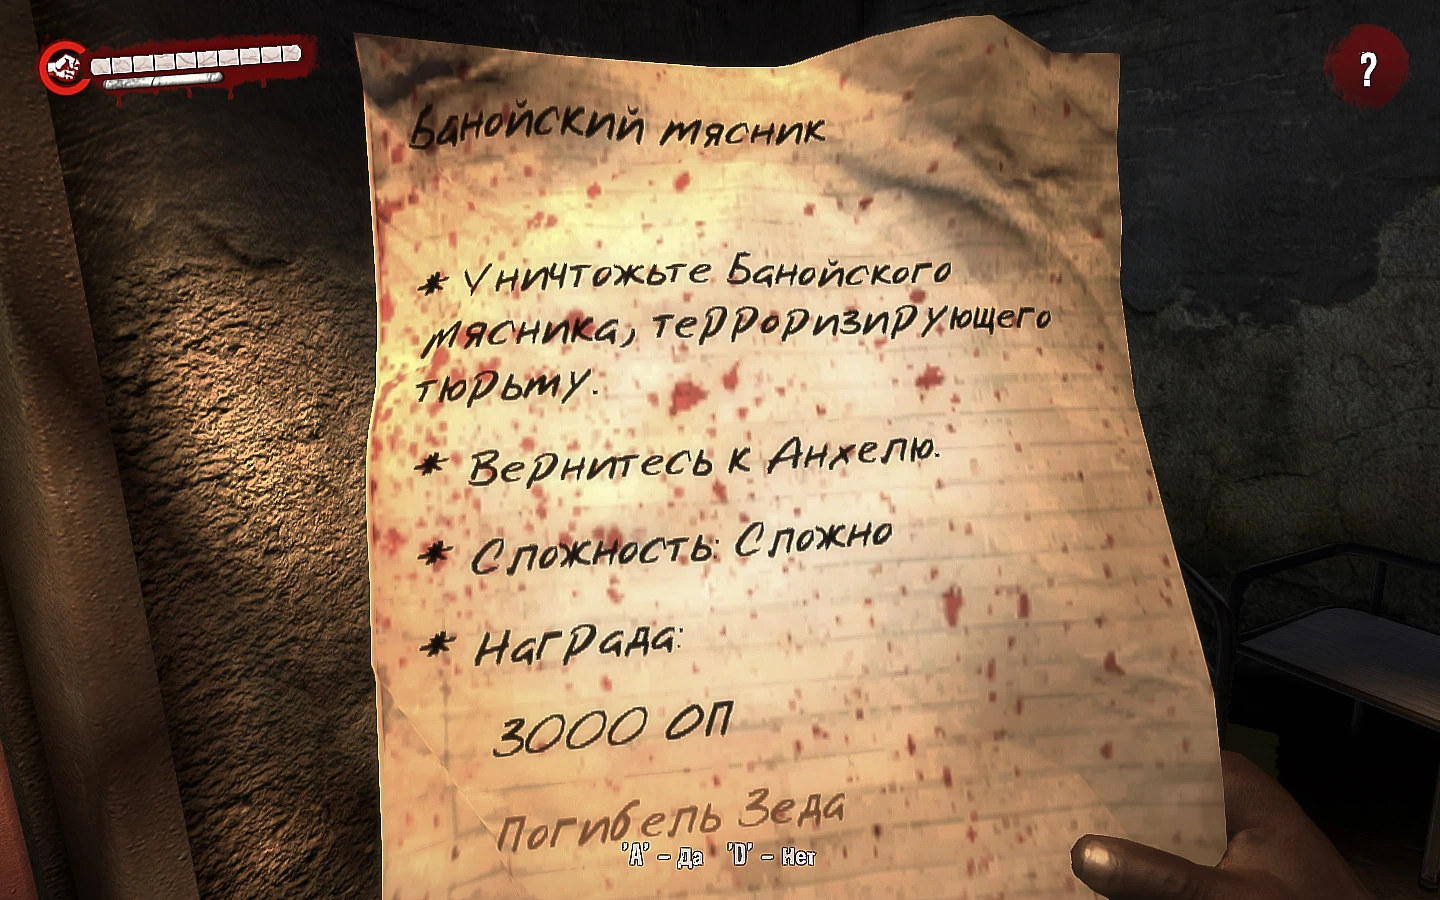 ?
Банойский мясник
* Уничтожьте Банойского
мясника, терроризирующего
тюрьму.
* Вернитесь к Анхелю.
* Сложность: Сложно
* Награда:
3000 ОП
Погибель Зеда
'A' - Да 'D' - Нет